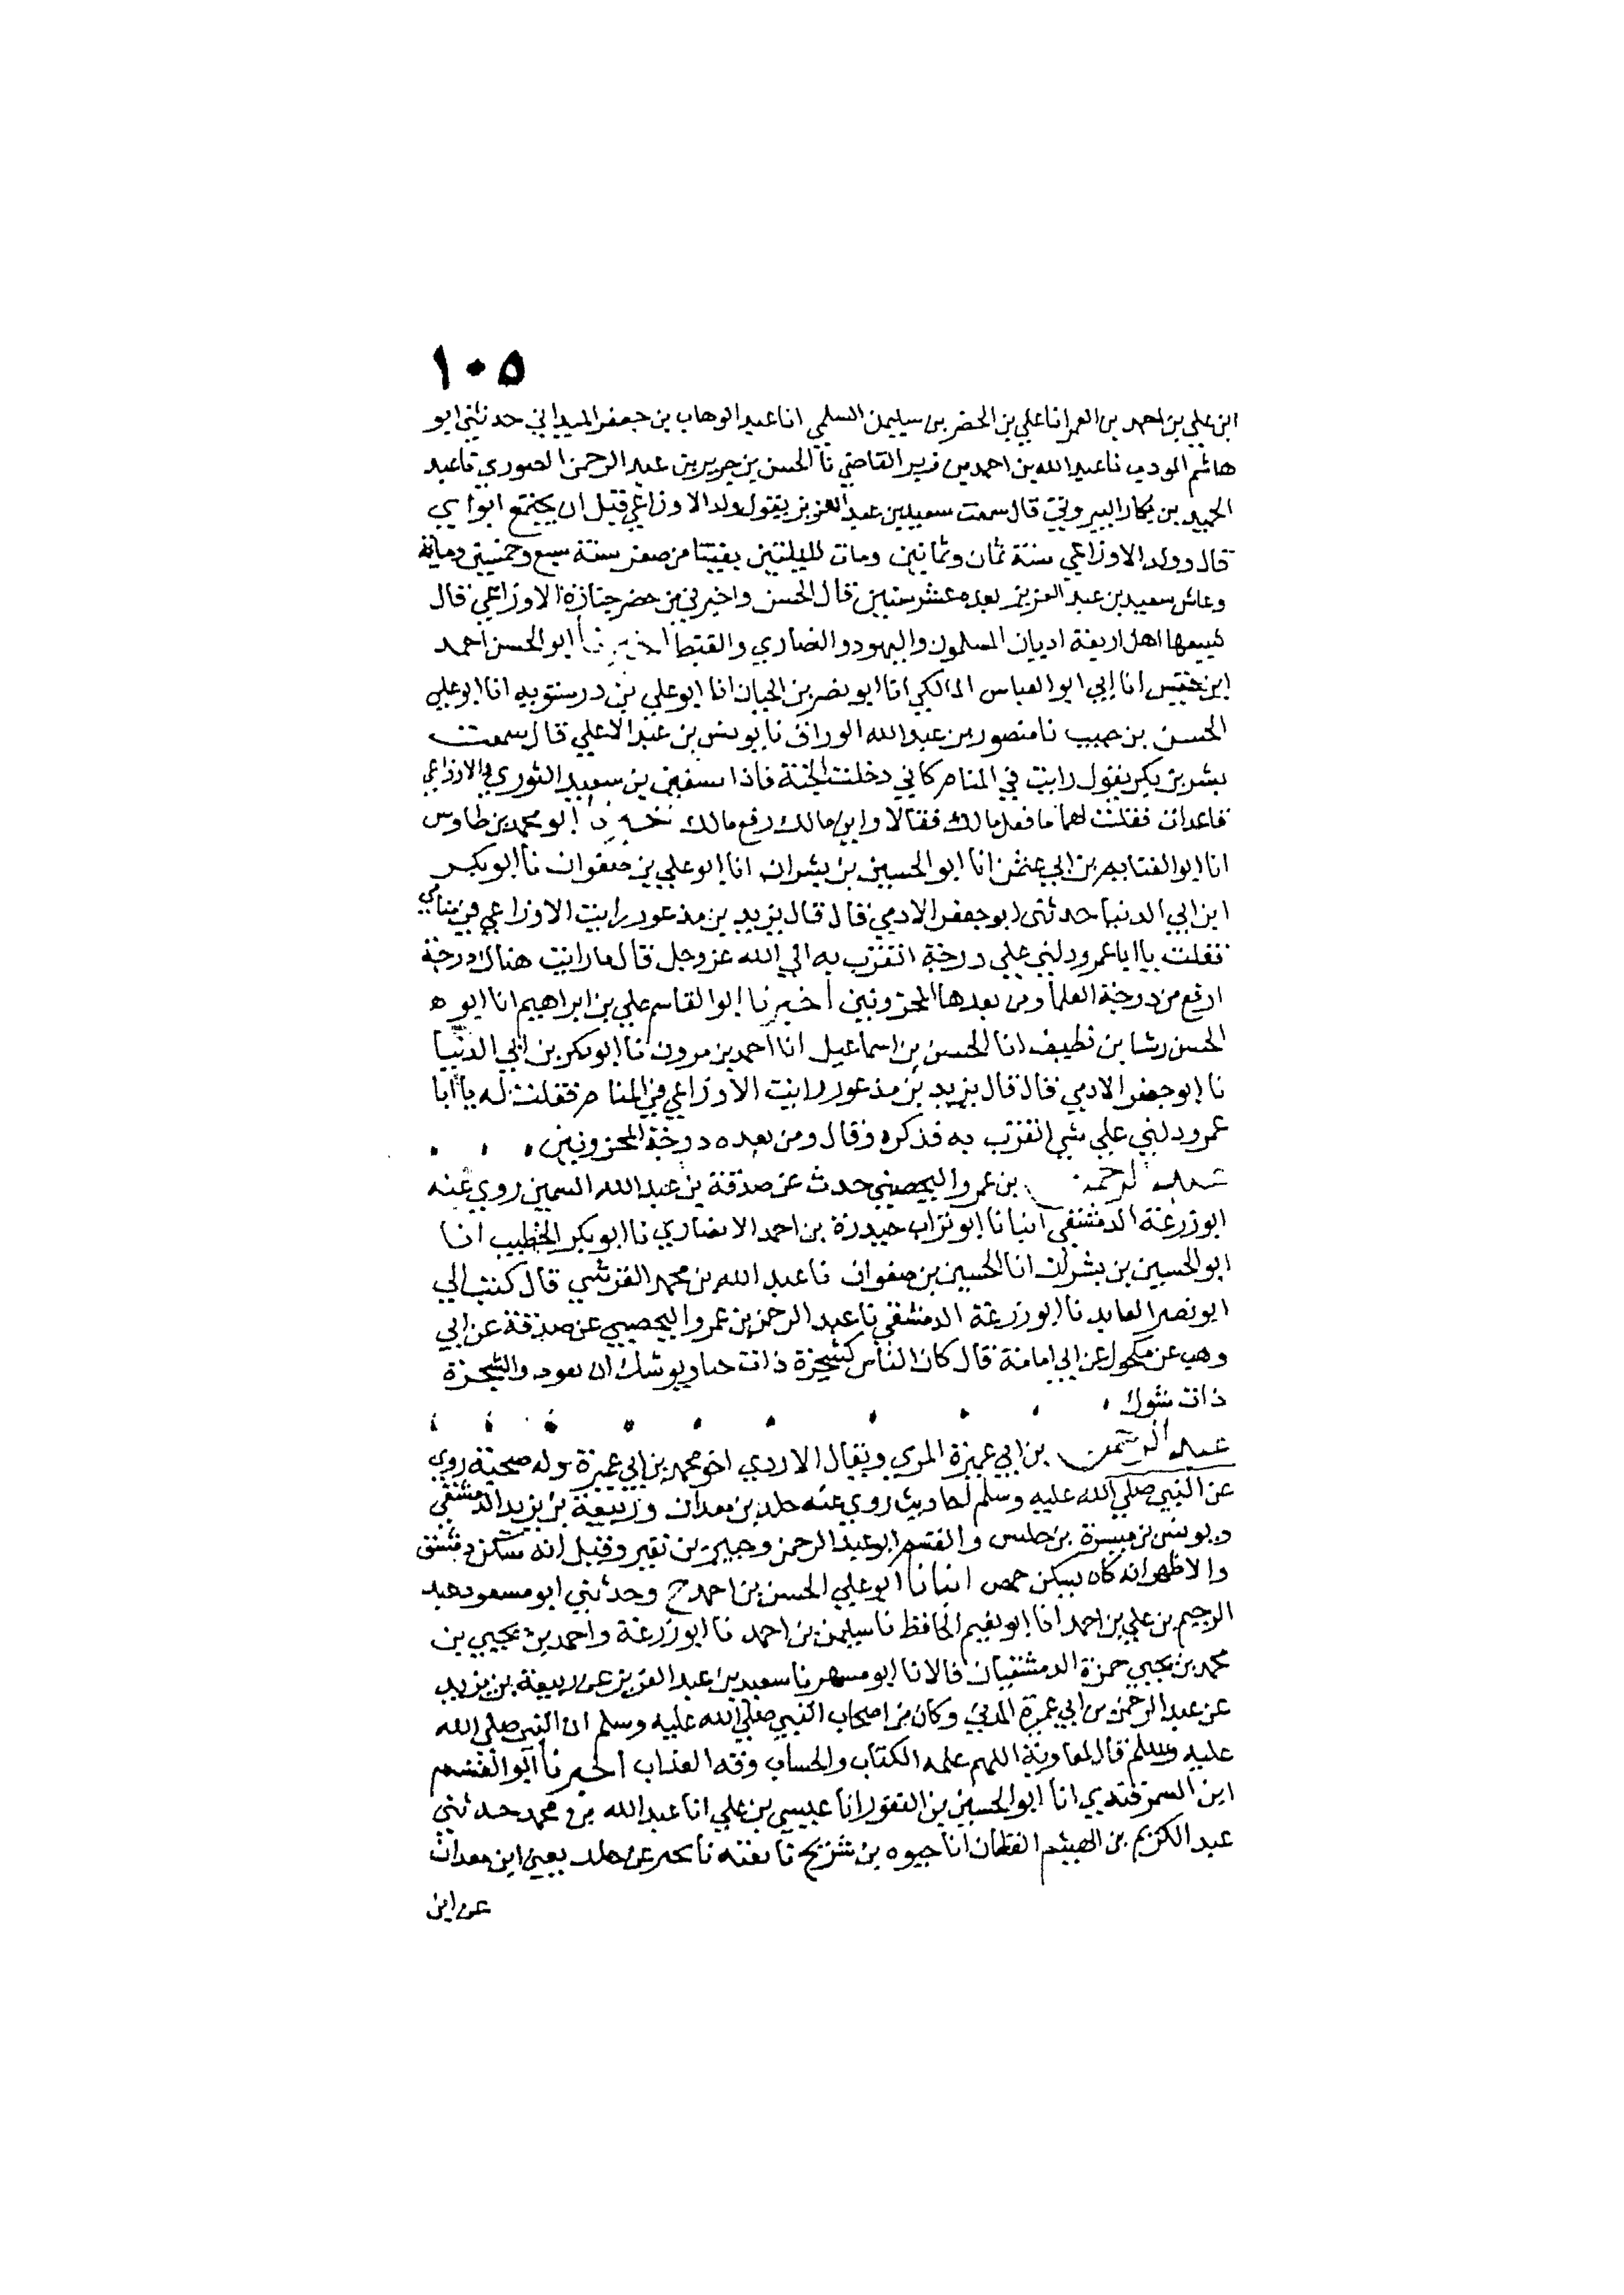 ١٠٥
ابن علي بن احمد بن العمر انا علي بن الخضر بن سليمن السلمي انا عبد الوهاب بن جعفر الميداني حدثني ابو
هاشم المودب نا عبد الله بن احمد بن زبر القاضي نا الحسن بن جرير بن عبد الرحمن الصوري نا عبد
الحميد بن بكار البيروتي قال سمعت سعيد بن عبد العزيز يقول ولد الاوزاعي قبل ان يجتمع ابواي
قال وولد الاوزاعي سنة ثمان وثمانين ومات لليلتين بقيتا من صفر سنة سبع وخمسين ومائة
وعاش سعيد بن عبد العزيز بعده عشر سنين قال الحسن واخبرني من حضر جنازة الاوزاعي قال
شيعها اهل اربعة اديان المسلمون واليهود والنصاري والقبط اخبرنا ابو الحسن احمد
ابن قبيس انا ابي ابو العباس المالكي انا ابو نصر بن الجبان انا ابو علي بن درستويه انا ابو علي
الحسن بن حبيب نا منصور بن عبد الله الوراق نا يونس بن عبد الاعلي قال سمعت
بشر بن بكر يقول رايت في المنام كاني دخلت الجنة فاذا سفين بن سعيد الثوري والاوزاعي
قاعدان فقلت لهما ما فعل مالك فقالا واين مالك رفع مالك اخبرنا ابو محمد بن طاوس
انا ابو الغنايم بن ابي عثمن انا ابو الحسين بن بشران انا ابو علي بن صفوان نا ابو بكر
ابن ابي الدنيا حدثني ابو جعفر الادمي قال قال يزيد بن مذعور رايت الاوزاعي في منامي
فقلت يا ابا عمرو دلني علي درجة اتقرب به الي الله عز وجل قال ما رايت هناك درجة
ارفع من درجة العلما ومن بعدها المحزونين اخبرنا ابو القاسم علي بن ابراهيم انا ابو
الحسن رشا بن نظيف انا الحسن بن اسماعيل انا احمد بن مرون نا ابو بكر بن ابي الدنيا
نا ابو جعفر الادمي قال قال يزيد بن مذعور رايت الاوزاعي في المنام فقلت له يا ابا
عمرو دلني علي شي اتقرب به فذكره وقال ومن بعده درجة المحزونين
عبد الرحمن بن عمرو اليحصبي حدث عن صدقة بن عبد الله السمين روي عنه
ابو زرعة الدمشقي انبانا ابو تراب حيدرة بن احمد الانصاري نا ابو بكر الخطيب انا
ابو الحسين بن بشران انا الحسين بن صفوان نا عبد الله بن محمد القرشي قال كتب الي
ابو نصر العابد نا ابو زرعة الدمشقي نا عبد الرحمن بن عمرو اليحصبي عن صدقة عن ابي
وهب عن مكحول عن ابي امامة قال كان الناس كشجرة ذات جنا ويوشك ان تعود والشجرة
ذات شوك
عبد الرحمن بن ابي عميرة المزي ويقال الازدي اخو محمد بن ابي عميرة وله صحبة روي
عن النبي صلي الله عليه وسلم احاديث روي عنه خلد بن معدان وربيعة بن يزيد الدمشقي
ويونس بن ميسرة بن حلبس والقسم ابو عبد الرحمن وجبير بن نفير وقيل انه سكن دمشق
والاظهر انه كان يسكن حمص انبانا ابو علي الحسن بن احمد ح وحدثني ابو مسعود عبد
الرحيم بن علي بن احمد انا ابو نعيم الحافظ نا سليمن بن احمد نا ابو زرعة واحمد بن يحيي بن
محمد بن يحيي حمزة الدمشقيان قالا نا ابو مسهر نا سعيد بن عبد العزيز عن ربيعة بن يزيد
عن عبد الرحمن بن ابي عميرة المدني وكان من اصحاب النبي صلي الله عليه وسلم ان النبي صلي الله
عليه وسلم قال لمعاوية اللهم علمه الكتاب والحساب وقه العذاب اخبرنا ابو القسم
ابن السمرقندي انا ابو الحسين بن النقور انا عيسي بن علي انا عبد الله بن محمد حدثني
عبد الكريم بن الهيثم القطان انا حيوه بن شريح نا بقيه نا بحير عن خلد يعني ابن معدان
عن ابن